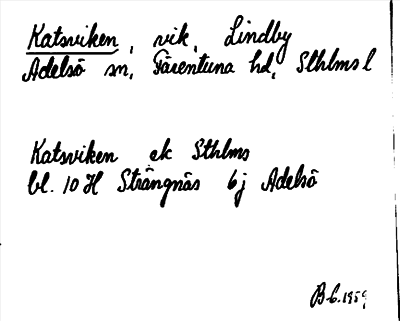 Katsviken, vik, Lindby
Adelsö sn, Färentuna hd, Sthlms l
Katsviken ek Sthlms
bl. 10 H Strängnäs 6j Adelsö
B-G. 1959